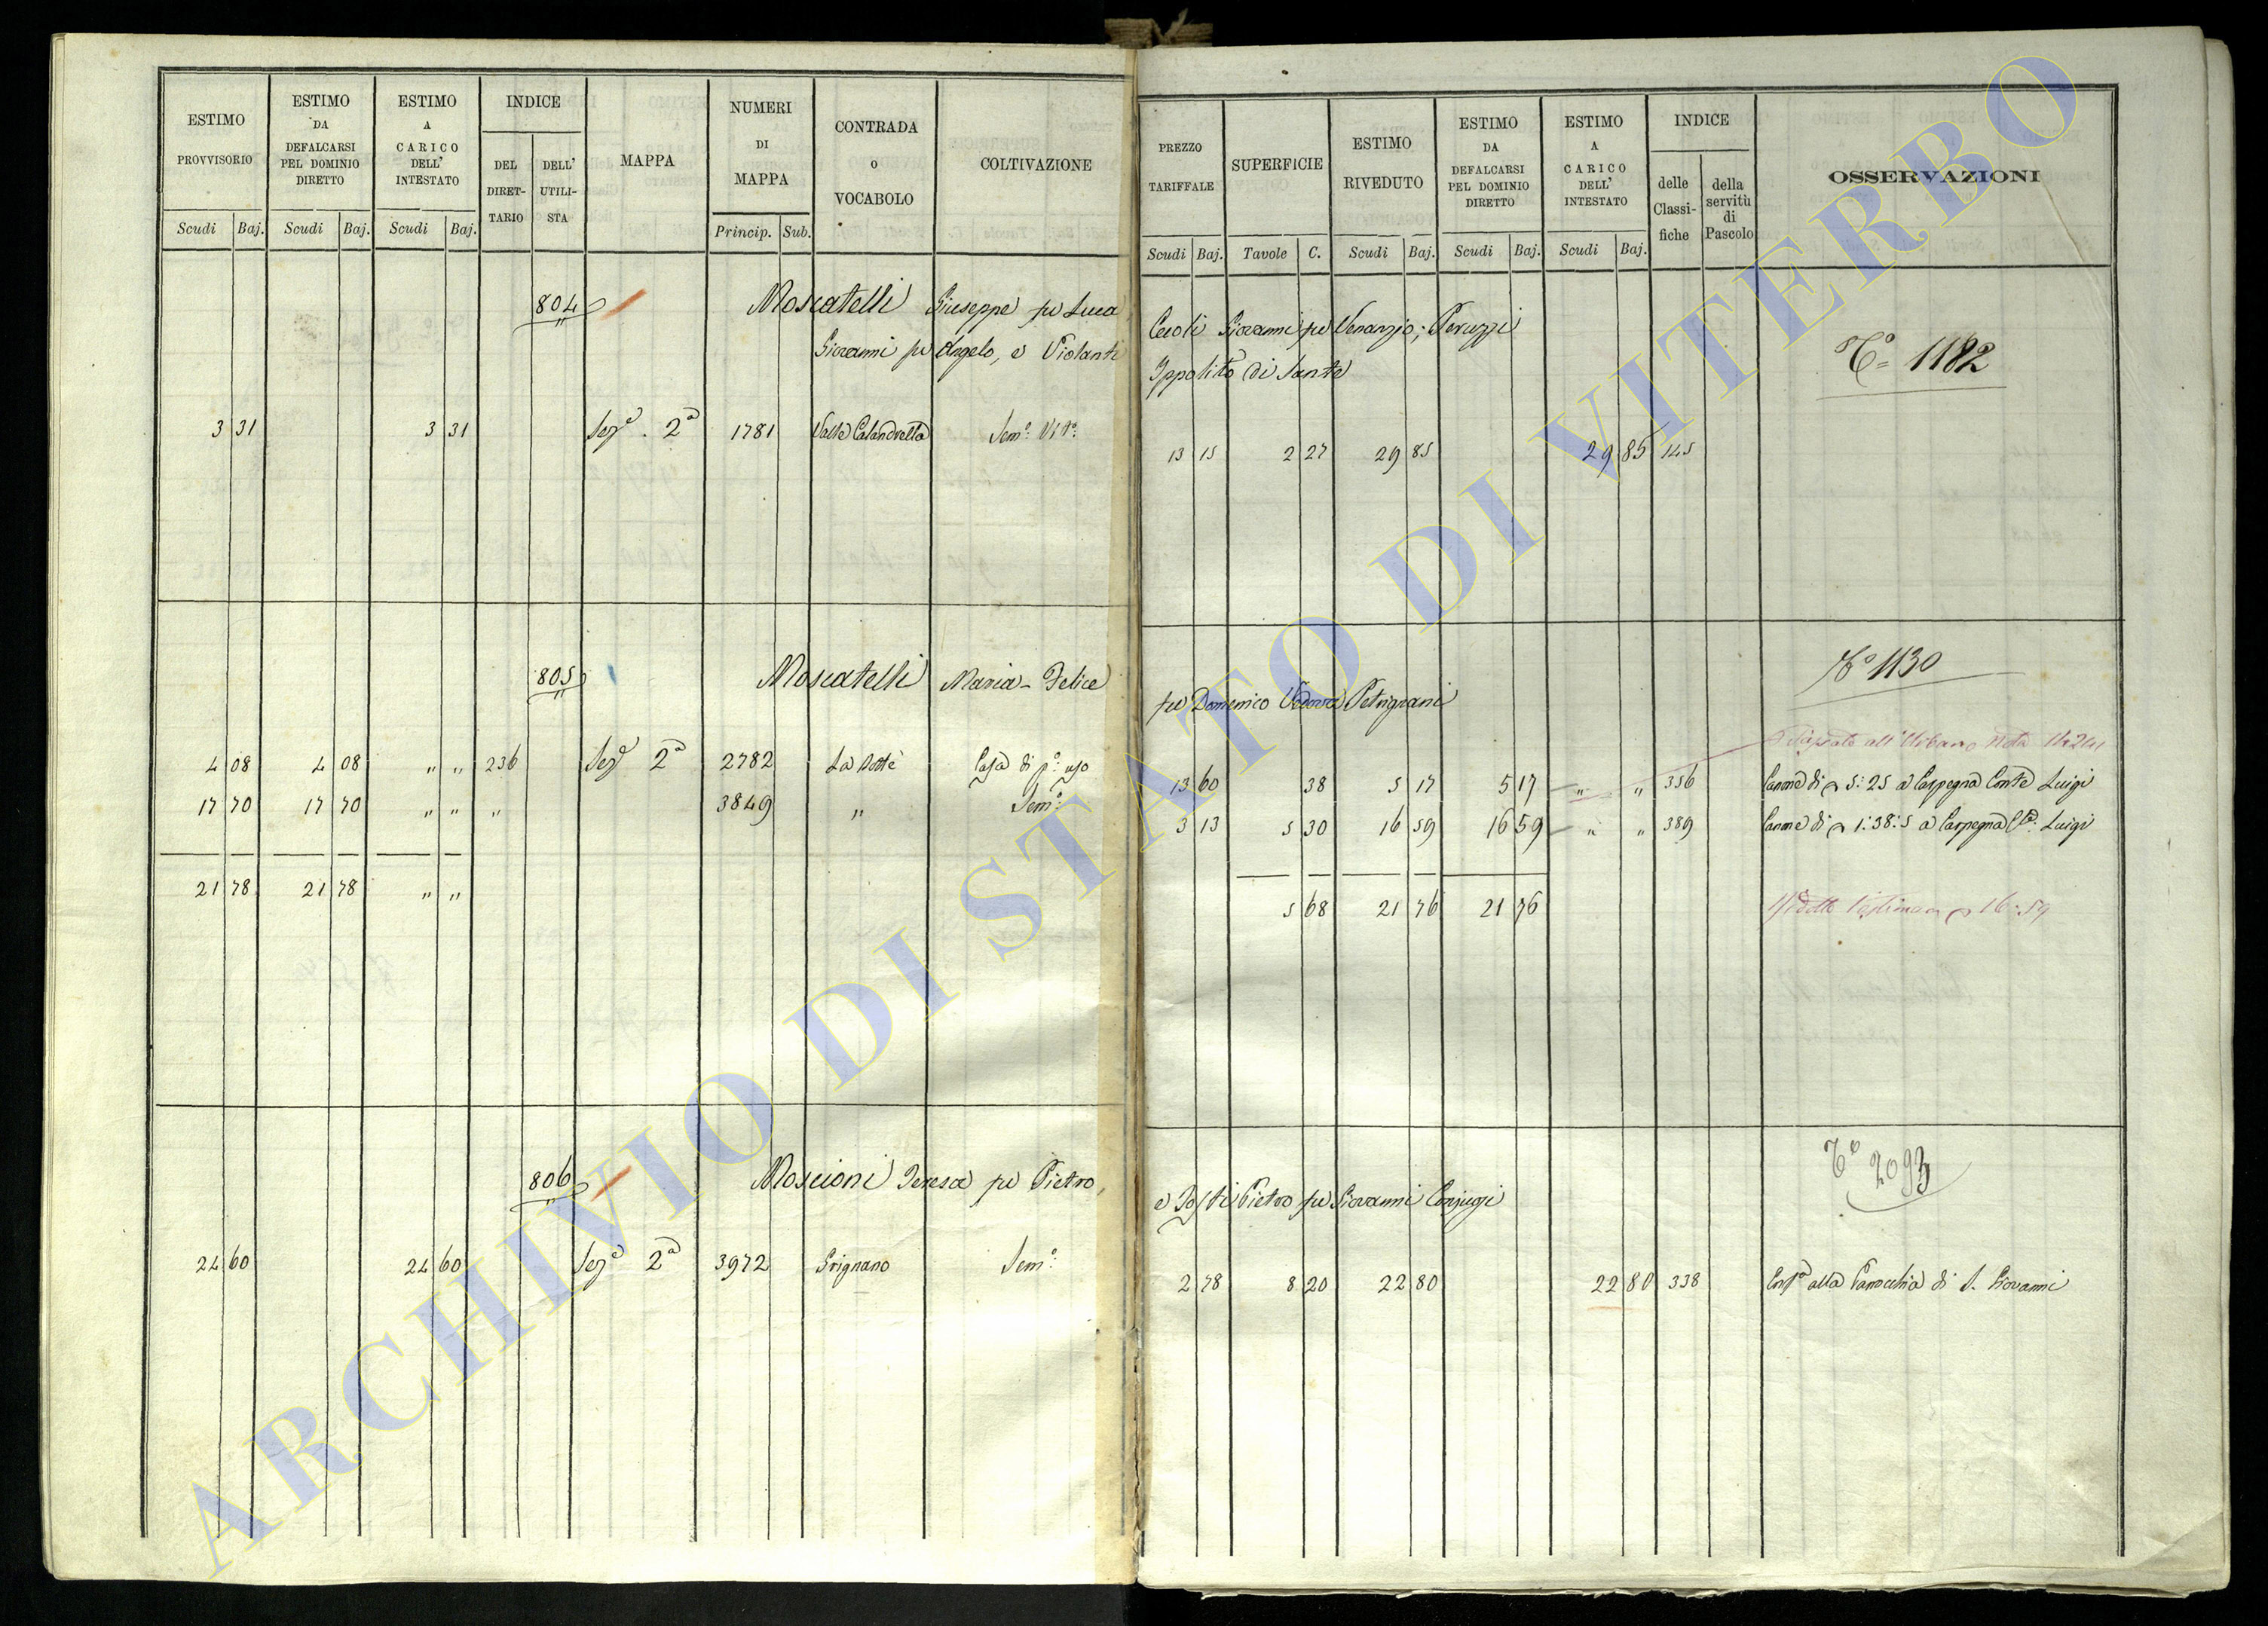 ESTIMO PROVVISORIO
ESTIMO DA DEFALCARSI PEL DOMINIO DIRETTO
ESTIMO A CARICO DELL' INTESTATO
INDICE
DEL DIRETTARIO
DELL' UTILISTA
MAPPA
NUMERI DI MAPPA
CONTRADA O VOCABOLO
COLTIVAZIONE
Scudi Baj. Scudi Baj. Scudi Baj. Princip. Sub.
804 Moscatelli Giuseppe fu Luca
Giovanni fu Angelo, e Violanti
3 31 3 31 Sezᵉ. 2ª 1781 Valle Calandrella Semº: Vitº:
805 Moscatelli Maria-Felice
4 08 4 08 " " 236 Sezᵉ 2ª 2782 Casa di pº: uso
17 70 17 70 " " " 3849 " Semº:
21 78 21 78 " "
806 Moscioni Teresa fu Pietro
24 60 24 60 Sezᵉ 2ª 3972 Grignano Semº:
PREZZO TARIFFALE
SUPERFICIE
ESTIMO RIVEDUTO
ESTIMO DA DEFALCARSI PEL DOMINIO DIRETTO
ESTIMO A CARICO DELL' INTESTATO
INDICE
delle Classifiche
della servitù di Pascolo
OSSERVAZIONI
Scudi Baj. Tavole C. Scudi Baj. Scudi Baj. Scudi Baj.
Cecoli Giovanni fu Venanzio; Peruzzi
Ippolito di Sante
1182
13 15 2 27 29 85 29 85 145
1130
fu Domenico Vedova Petrignani
all'Urbano
13 60 38 5 17 5 17 " " 356 Canone di 5:25 a Carpegna Conte Luigi
3 13 5 30 16 59 16 59 " " 389 Canone di 1:38:5 a Carpegna Cᵗᵉ: Luigi
5 68 21 76 21 76
16:59
2093
e Tosti Pietro fu Giovanni Conjugi
2 78 8 20 22 80 22 80 338 alla Parrocchia di S. Giovanni
ARCHIVIO DI STATO DI VITERBO